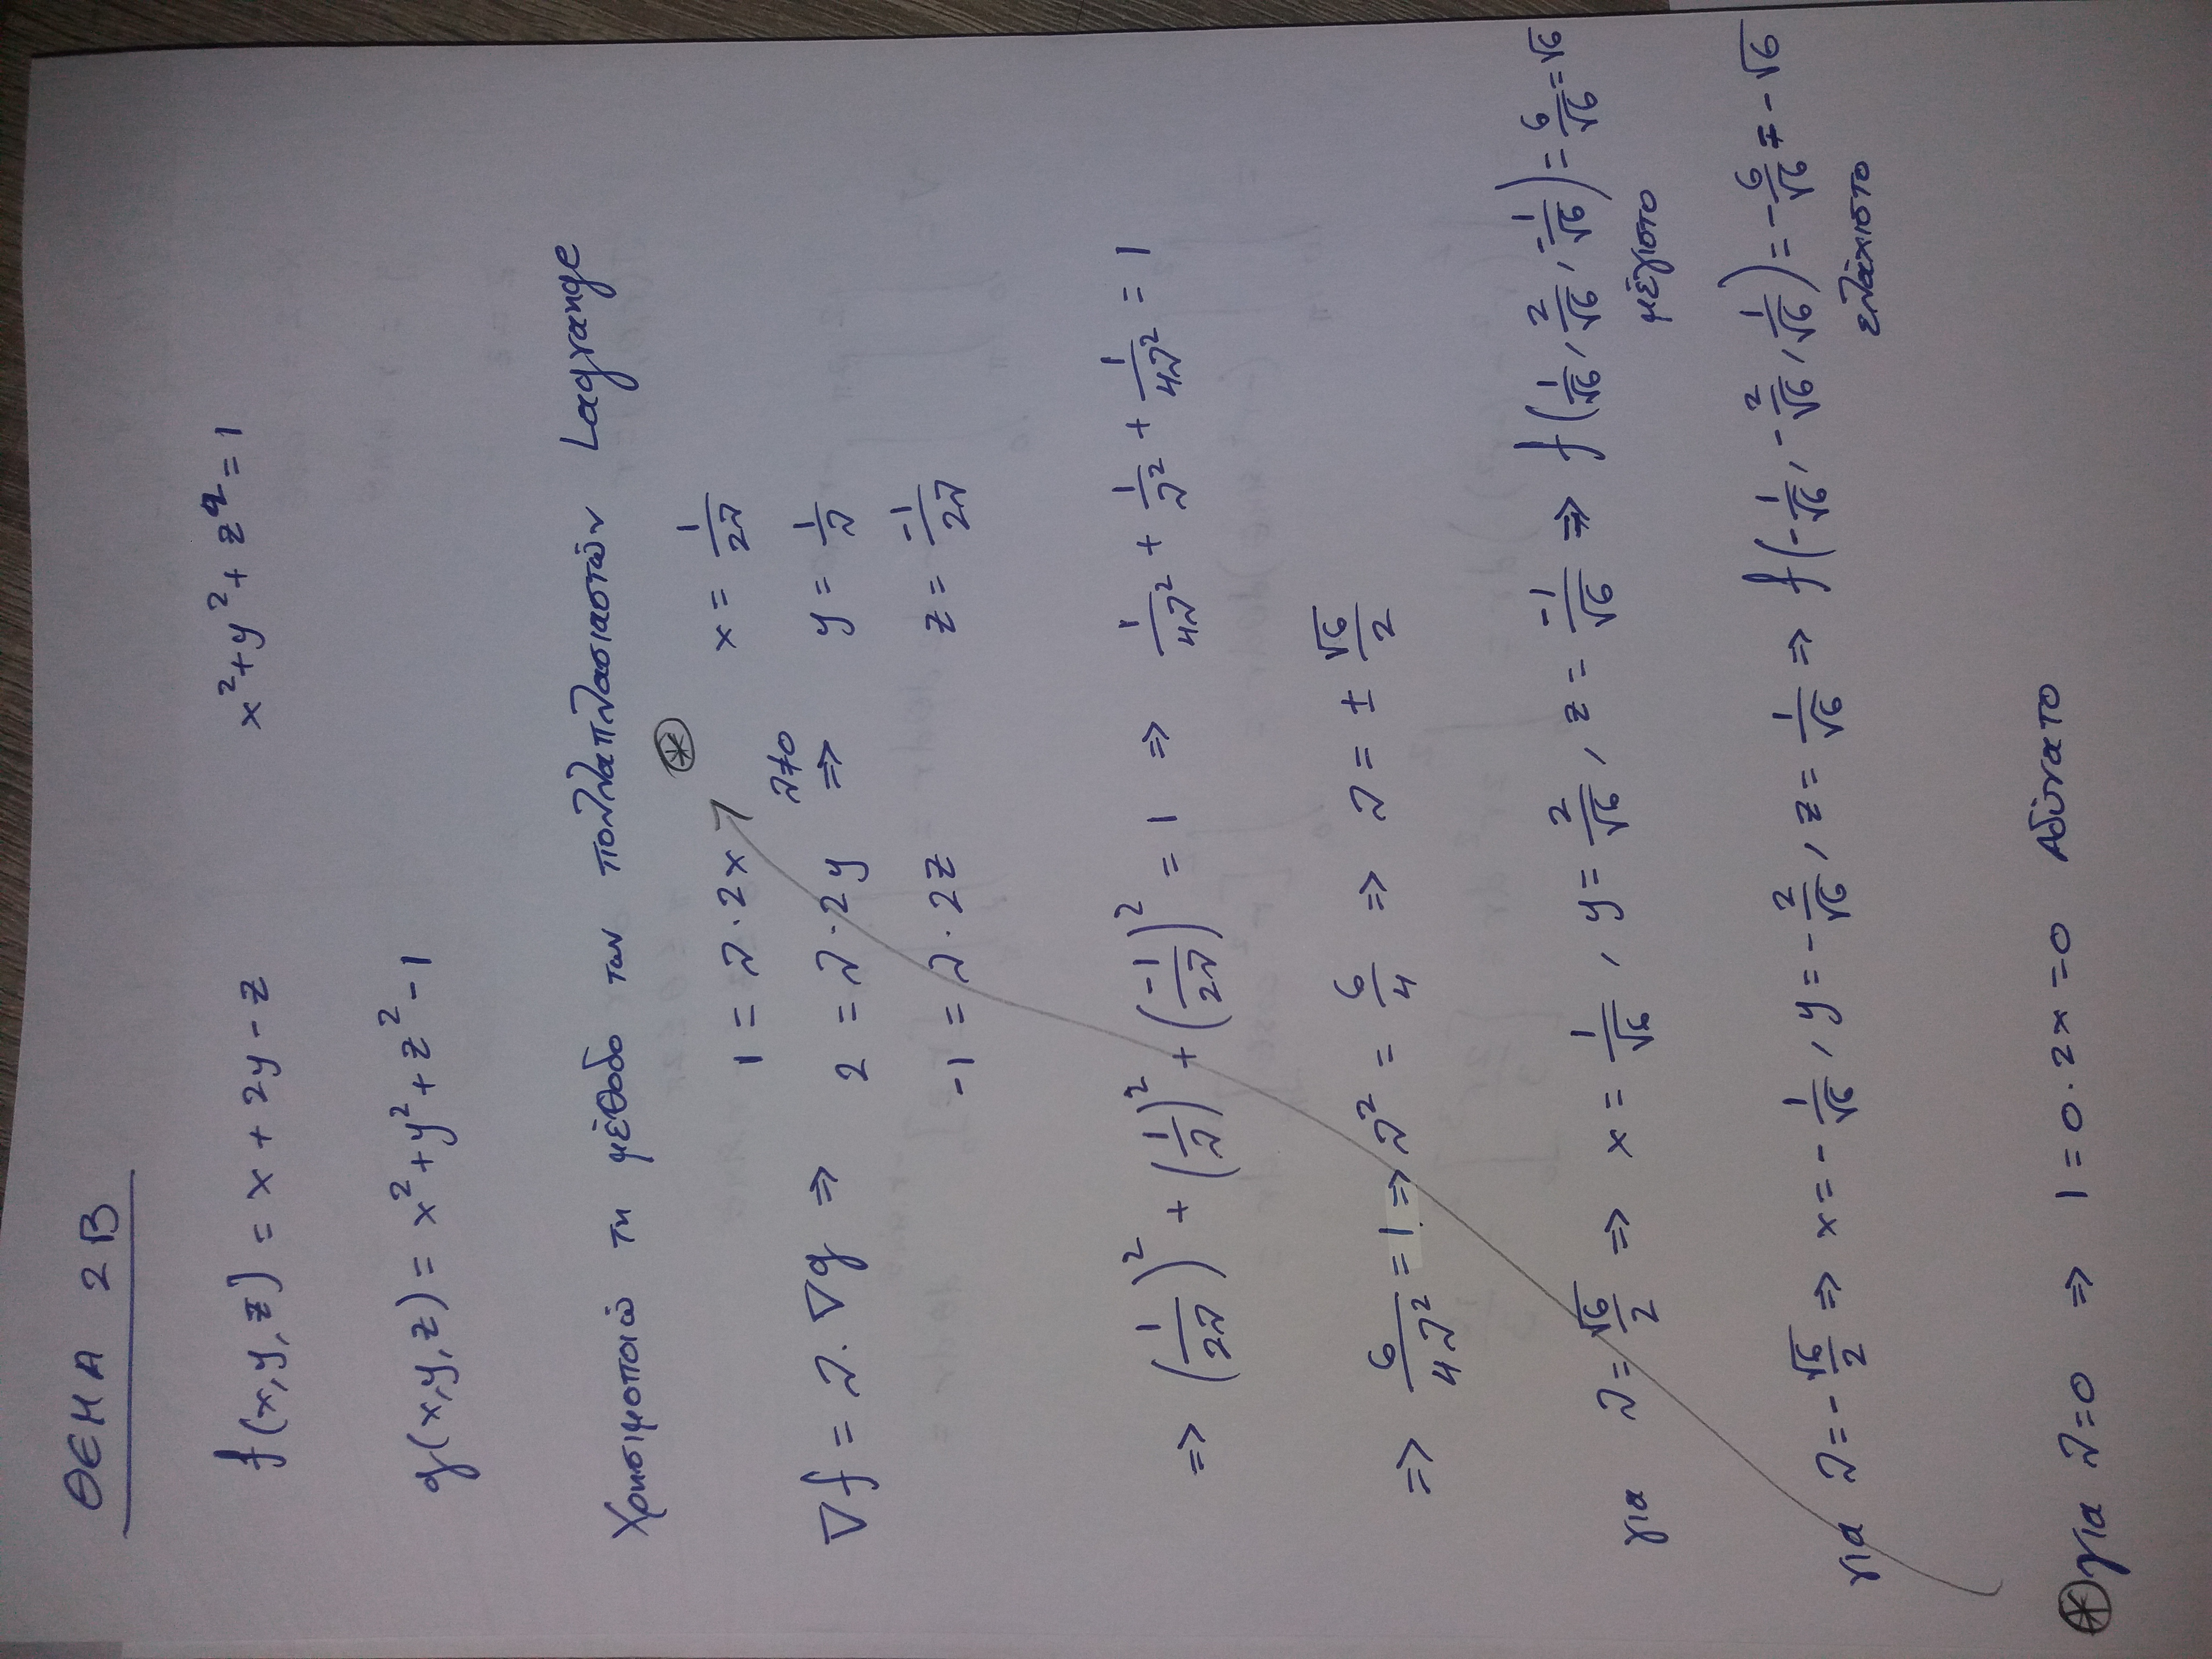 ΘΕΜΑ 2Β
f(x,y,z) = x + 2y - z x² + y² + z² = 1
g(x,y,z) = x² + y² + z² - 1
Χρησιμοποιώ τη μέθοδο των πολλαπλασιαστών Lagrange
1 = λ · 2x ⊛ x = 1/2λ
∇f = λ · ∇g ⇒ 2 = λ · 2y λ≠0 ⇒ y = 1/λ
-1 = λ · 2z z = -1/2λ
⇒ (1/2λ)² + (1/λ)² + (-1/2λ)² = 1 ⇒ 1/4λ² + 1/λ² + 1/4λ² = 1
⇒ 6/4λ² = 1 ⇒ λ² = 6/4 ⇒ λ = ± √6/2
για λ = √6/2 ⇒ x = 1/√6, y = 2/√6, z = -1/√6 ⇒ f(1/√6, 2/√6, -1/√6) = 6/√6 = √6
μέγιστο
για λ = -√6/2 ⇒ x = -1/√6, y = -2/√6, z = 1/√6 ⇒ f(-1/√6, -2/√6, 1/√6) = -6/√6 = -√6
ελάχιστο
⊛ για λ = 0 ⇒ 1 = 0 · 2x = 0 Αδύνατο